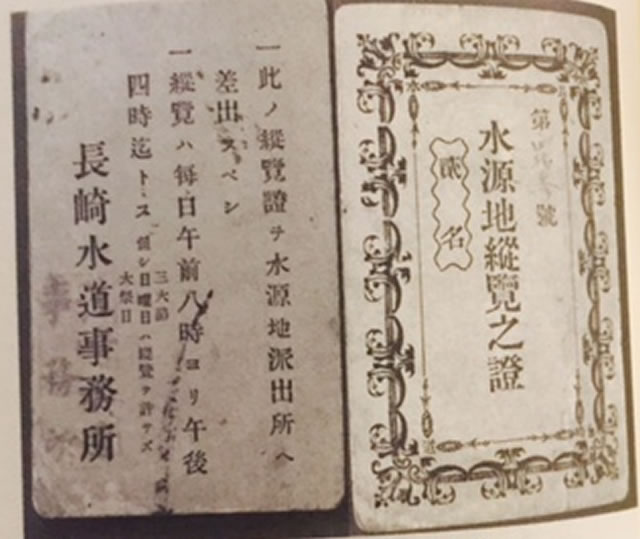 第 號
水源地縱覽之證
貳名
水
道
一此ノ縱覽證ヲ水源地派出所ヘ
差出スベシ
一縱覽ハ每日午前八時ヨリ午後
四時迄トス
三大節
大祭日
但シ日曜日ハ縱覽ヲ許サズ
長崎水道事務所